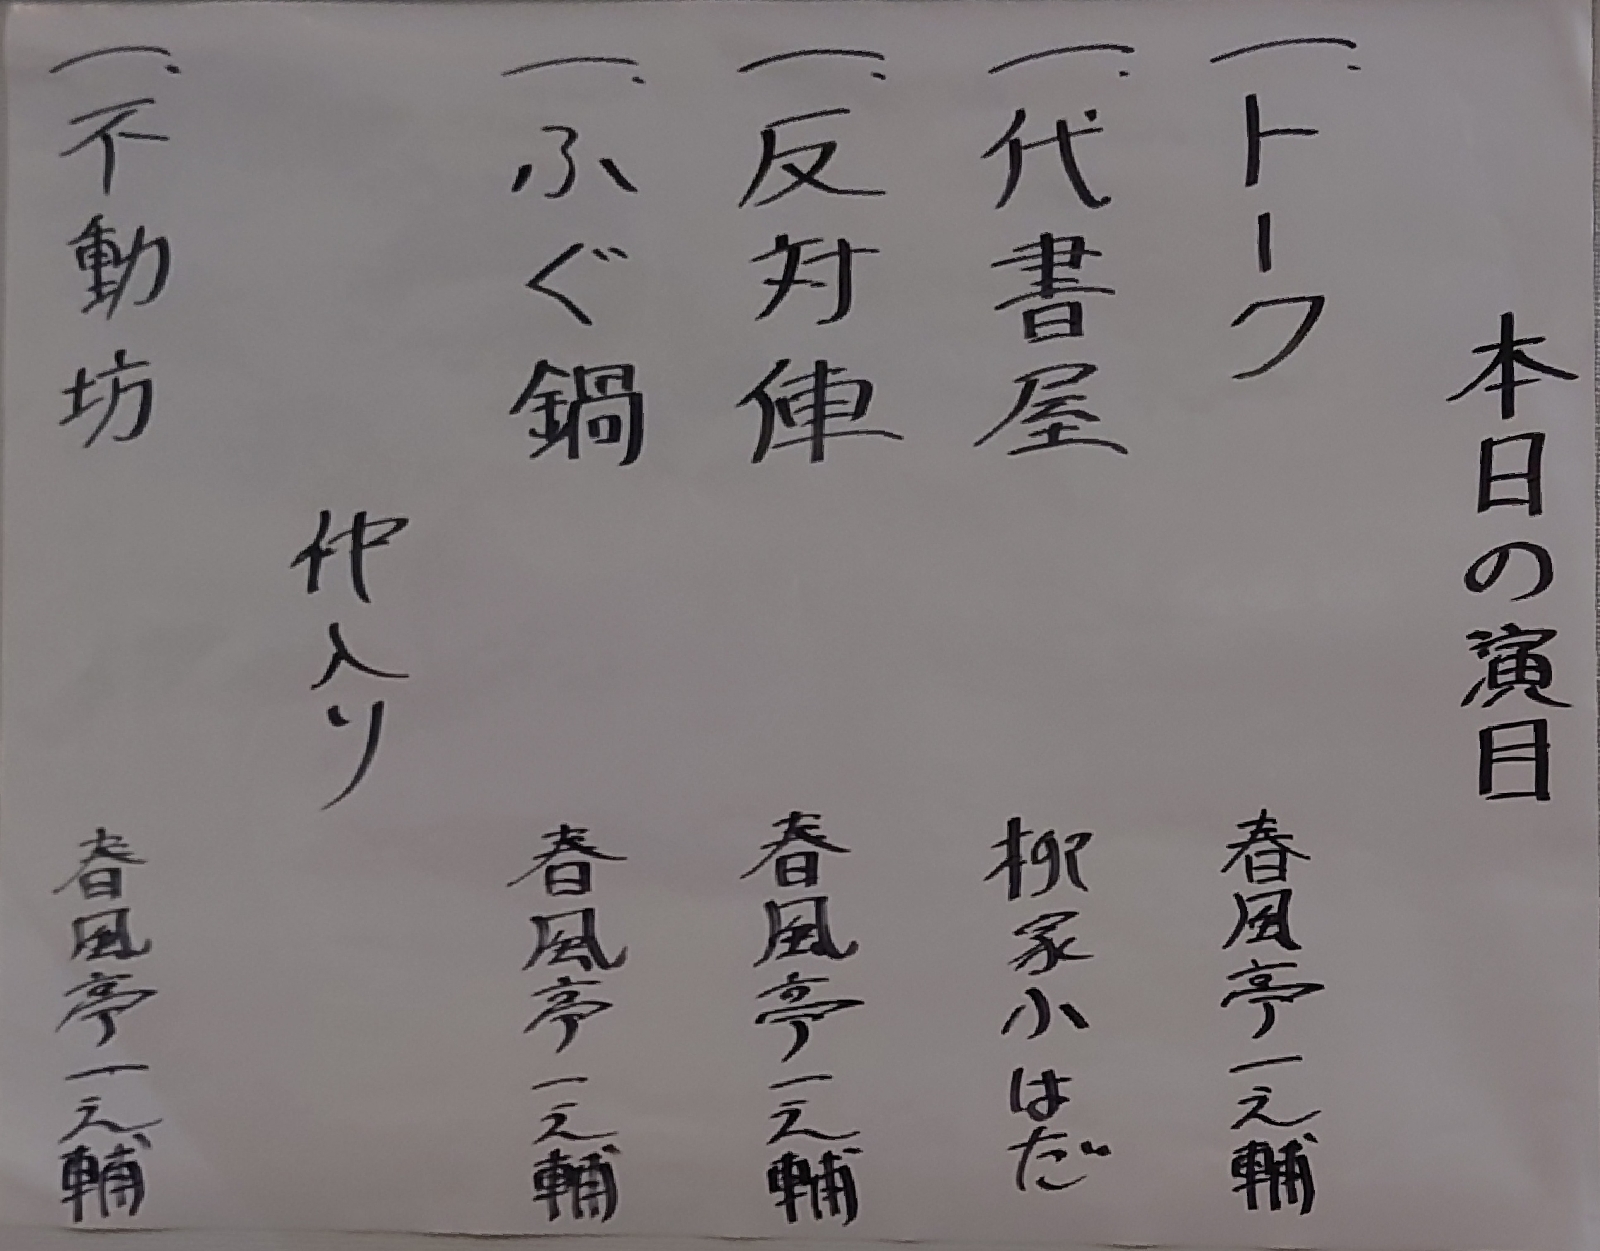 本日の演目
一、トーク 春風亭一之輔
一、代書屋 柳家小はだ
一、反対俥 春風亭一之輔
一、ふぐ鍋 春風亭一之輔
仲入り
一、不動坊 春風亭一之輔